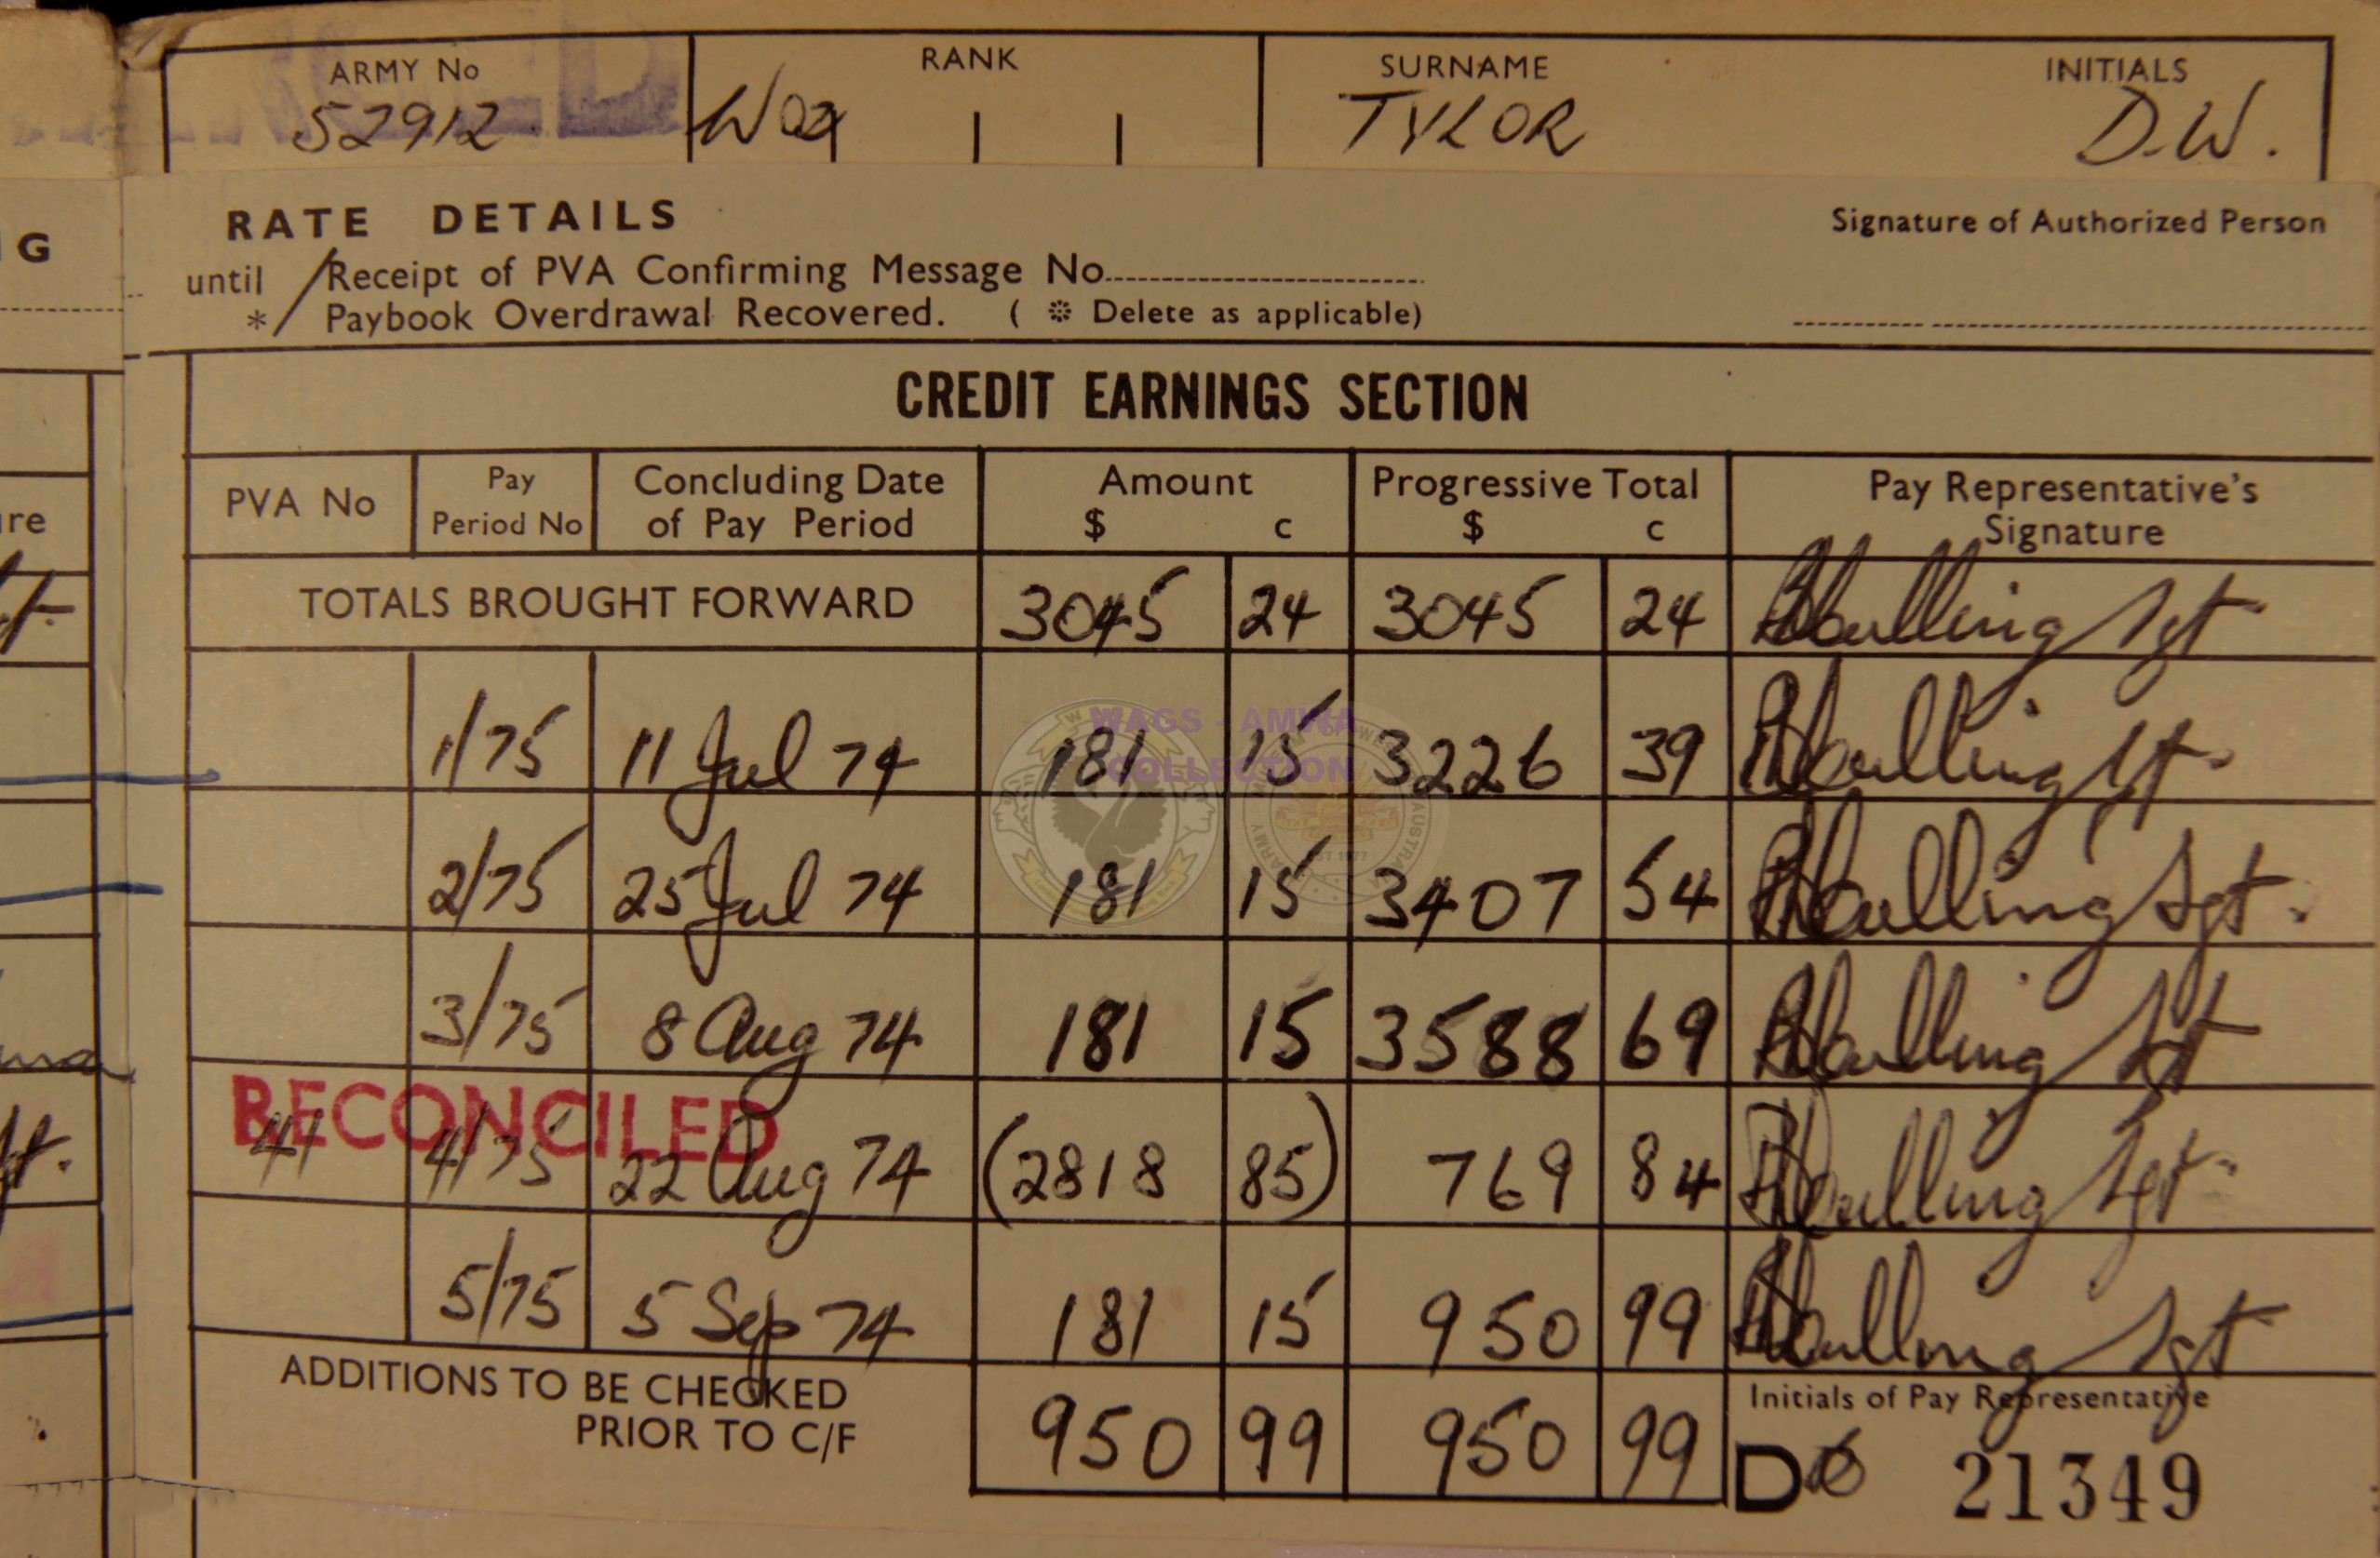 ARMY No RANK SURNAME INITIALS
52912 WO2 TYLOR D.W.
RATE DETAILS Signature of Authorized Person
until / Receipt of PVA Confirming Message No
* / Paybook Overdrawal Recovered. ( * Delete as applicable)
CREDIT EARNINGS SECTION
PVA No Pay Period No Concluding Date of Pay Period Amount $ c Progressive Total $ c Pay Representative's Signature
TOTALS BROUGHT FORWARD 3045 24 3045 24 Sgt
1/75 11 Jul 74 181 15 3226 39 Sgt
2/75 25 Jul 74 181 15 3407 54 Sgt.
3/75 8 Aug 74 181 15 3588 69 Sgt
RECONCILED
41 4/75 22 Aug 74 (2818 85) 769 84 Sgt
5/75 5 Sep 74 181 15 950 99 Sgt
ADDITIONS TO BE CHECKED
PRIOR TO C/F 950 99 950 99
Initials of Pay Representative
D 21349
WAGS - AMWA
COLLECTION
G
re